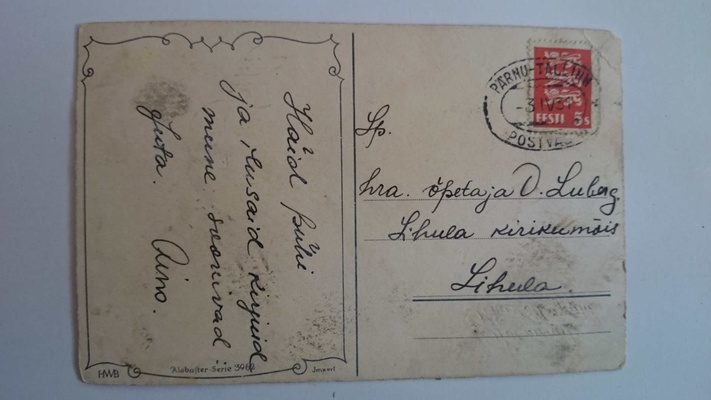 Häid pühi
ja ilusaid kirjuid
mune soovivad
Juta.
Aino.
HWB
Alabaster-Serie
Import
PÄRNU-TALLINN
-3 IV
POSTVAG
EESTI 5s
Sp.
hra. õpetaja D. Luberg
Lihula kirikumõis
Lihula.